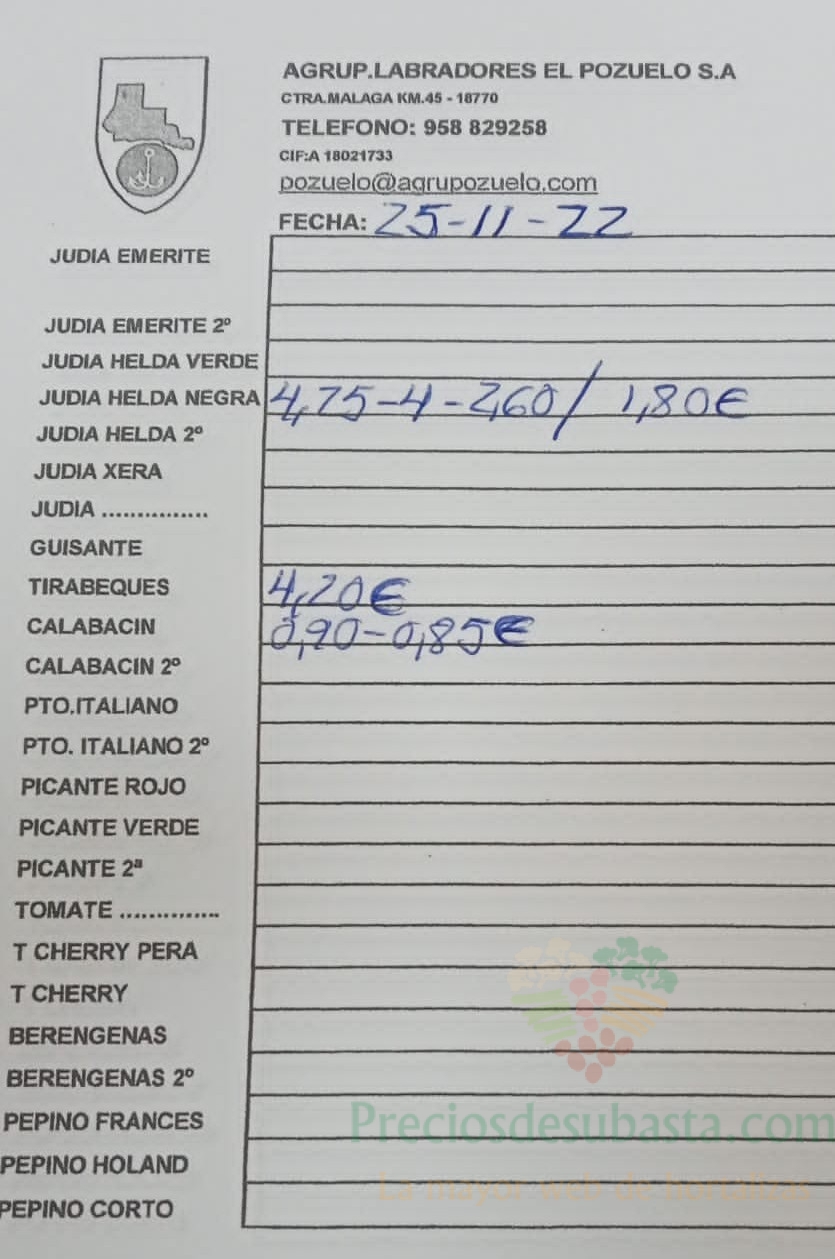 AGRUP.LABRADORES EL POZUELO S.A
CTRA.MALAGA KM.45 - 18770
TELEFONO: 958 829258
CIF:A 18021733
pozuelo@agrupozuelo.com
FECHA: 25-11-22
JUDIA EMERITE
JUDIA EMERITE 2º
JUDIA HELDA VERDE
JUDIA HELDA NEGRA 4,75-4-2,60/ 1,80€
JUDIA HELDA 2º
JUDIA XERA
JUDIA ...............
GUISANTE
TIRABEQUES 4,20€
CALABACIN 0,90-0,85€
CALABACIN 2º
PTO.ITALIANO
PTO. ITALIANO 2º
PICANTE ROJO
PICANTE VERDE
PICANTE 2ª
TOMATE ..............
T CHERRY PERA
T CHERRY
BERENGENAS
BERENGENAS 2º
PEPINO FRANCES
Preciosdesubasta.com
PEPINO HOLAND
La mayor web de hortalizas
PEPINO CORTO